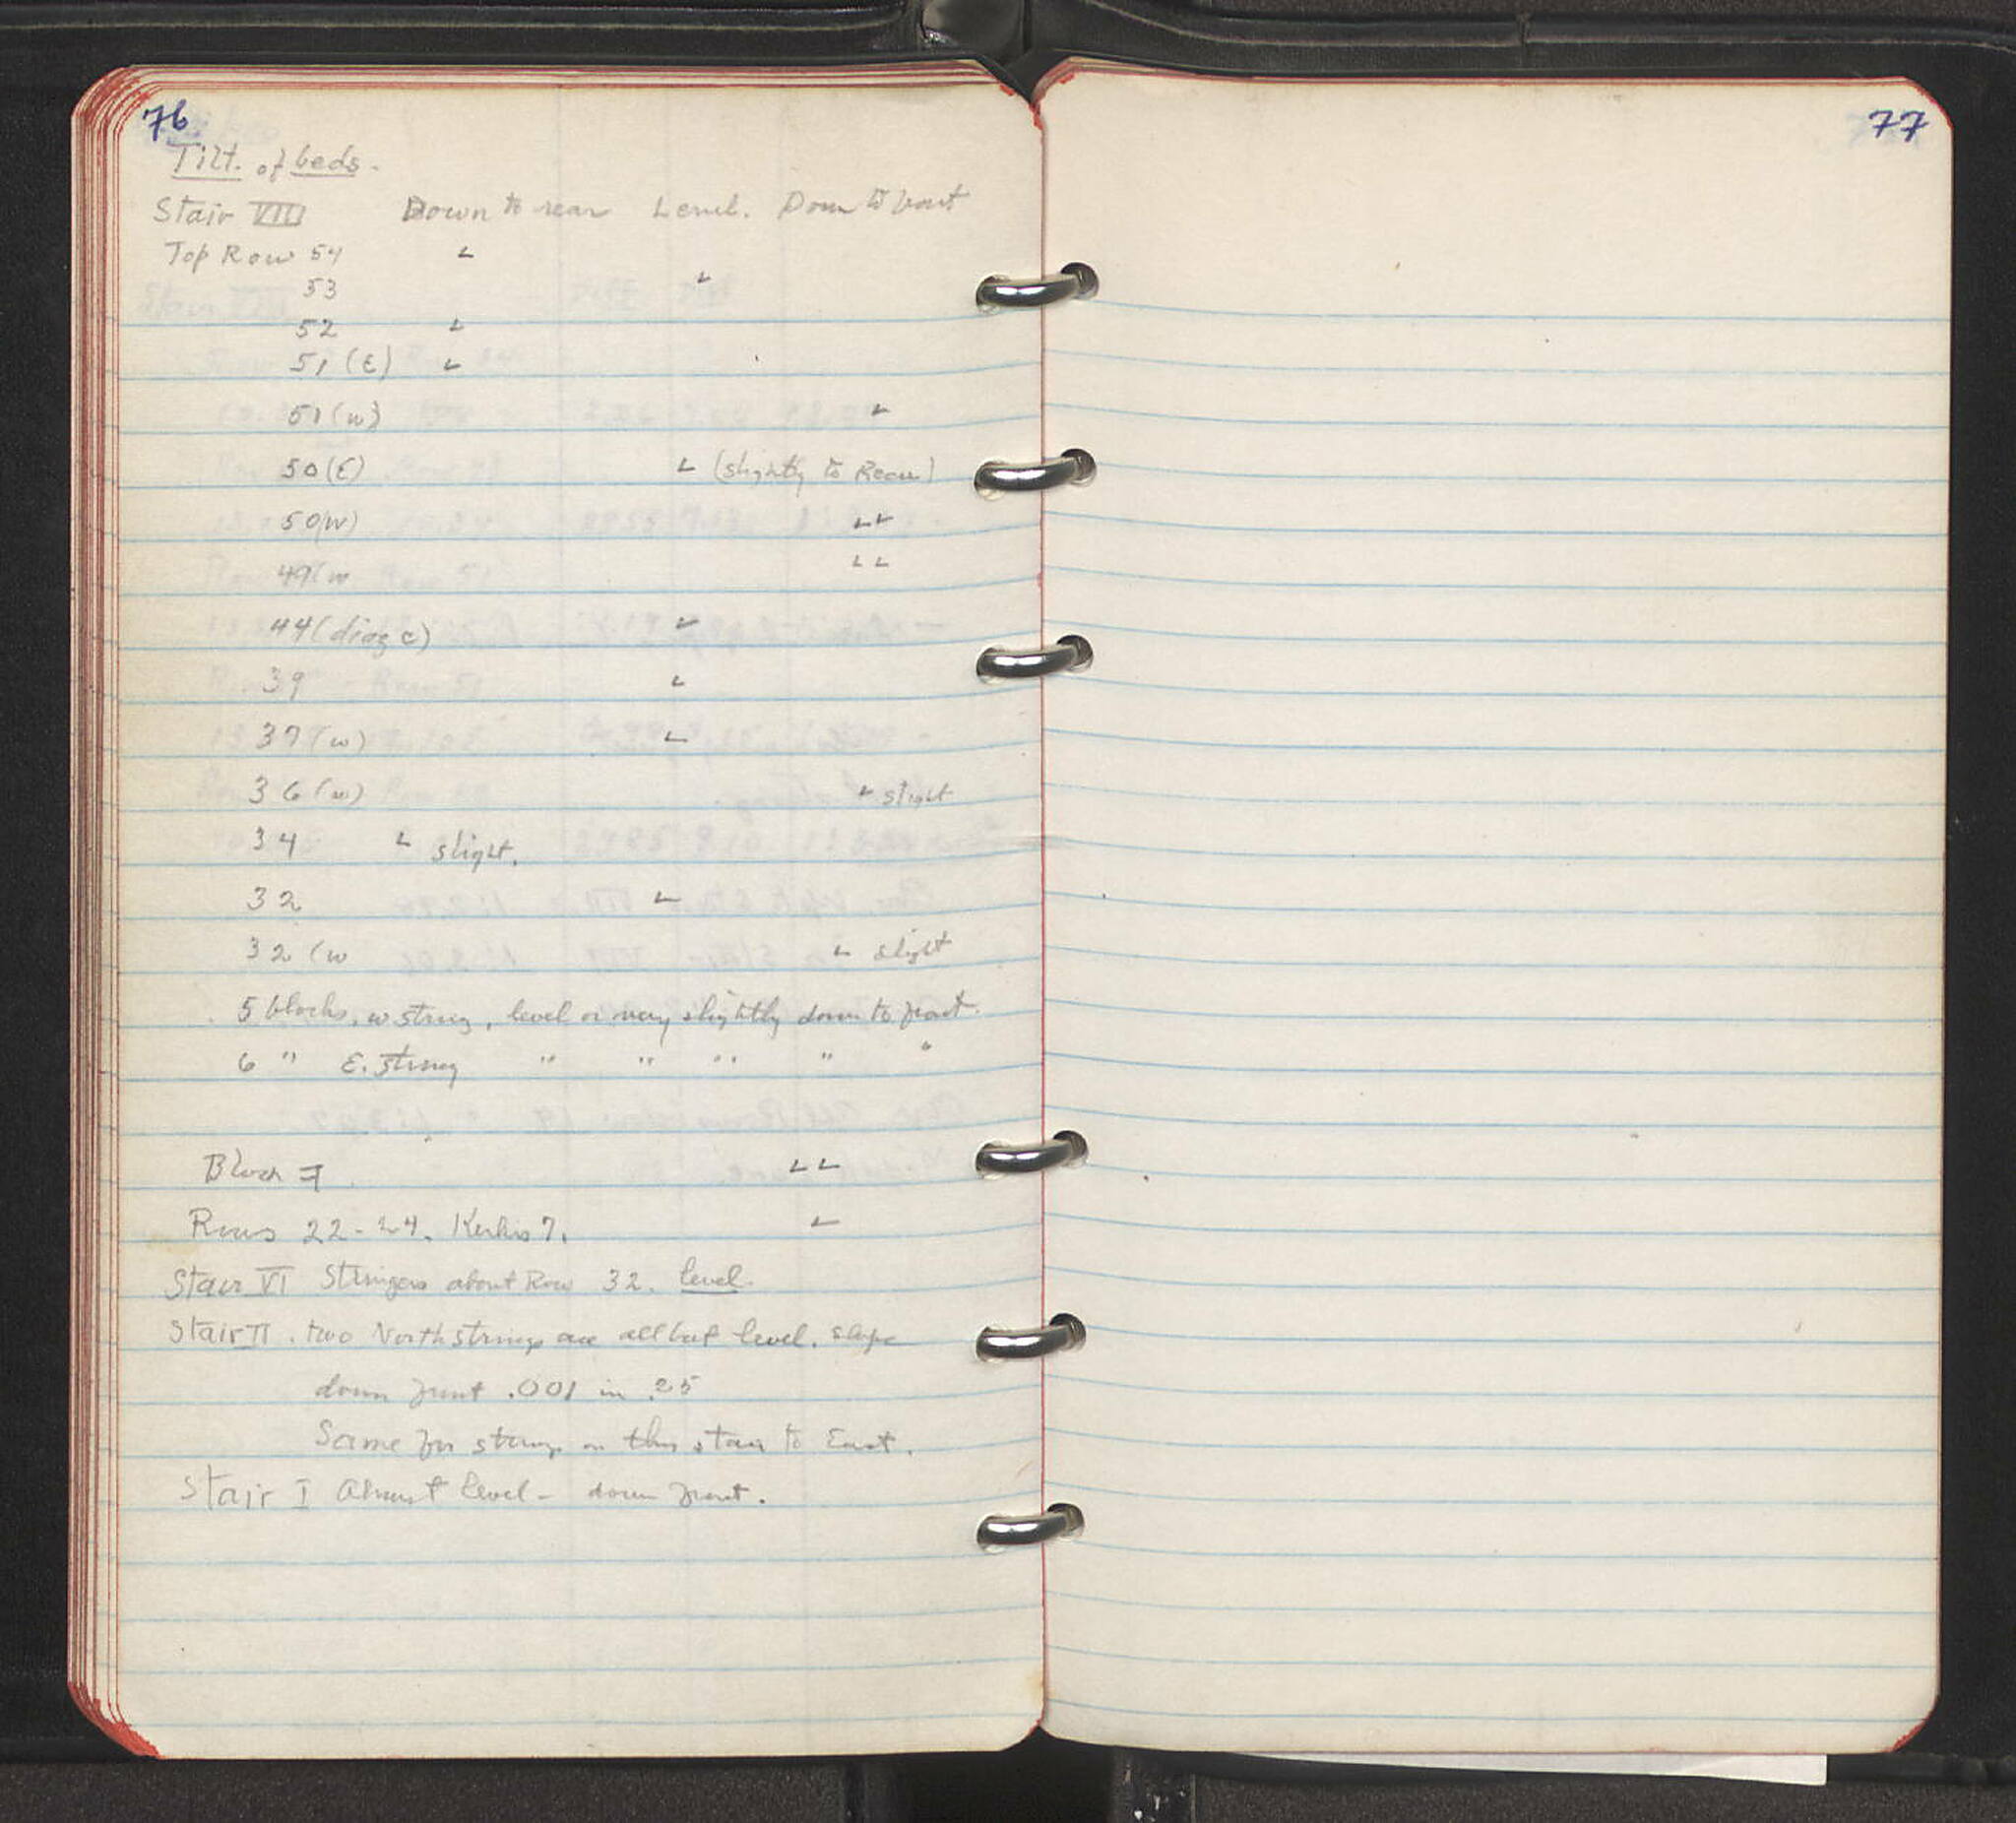 76
Tilt. of beds.
Stair VIII Down to rear Level. Down to front
Top Row 54 ✓
53 ✓
52 ✓
51 (E) ✓
51 (w) ✓
50 (E) ✓ (slightly to Rear)
50 (W) ✓✓
49 (w ✓✓
44 (diag c) ✓
39 ✓
37 (w) ✓
36 (w) ✓ slight
34 ✓ slight.
32 ✓
32 (w ✓ slight
5 blocks, w string, level or very slightly down to front.
6 " E. string " " " " "
Block ✓✓
Rows 22-24. Kerkis 7. ✓
Stair VI Stringers about Row 32. level.
Stair II. two North strings are all but level. slope
down front .001 in .25
Same for strings on this stair to East.
Stair I Almost level - down front.
77